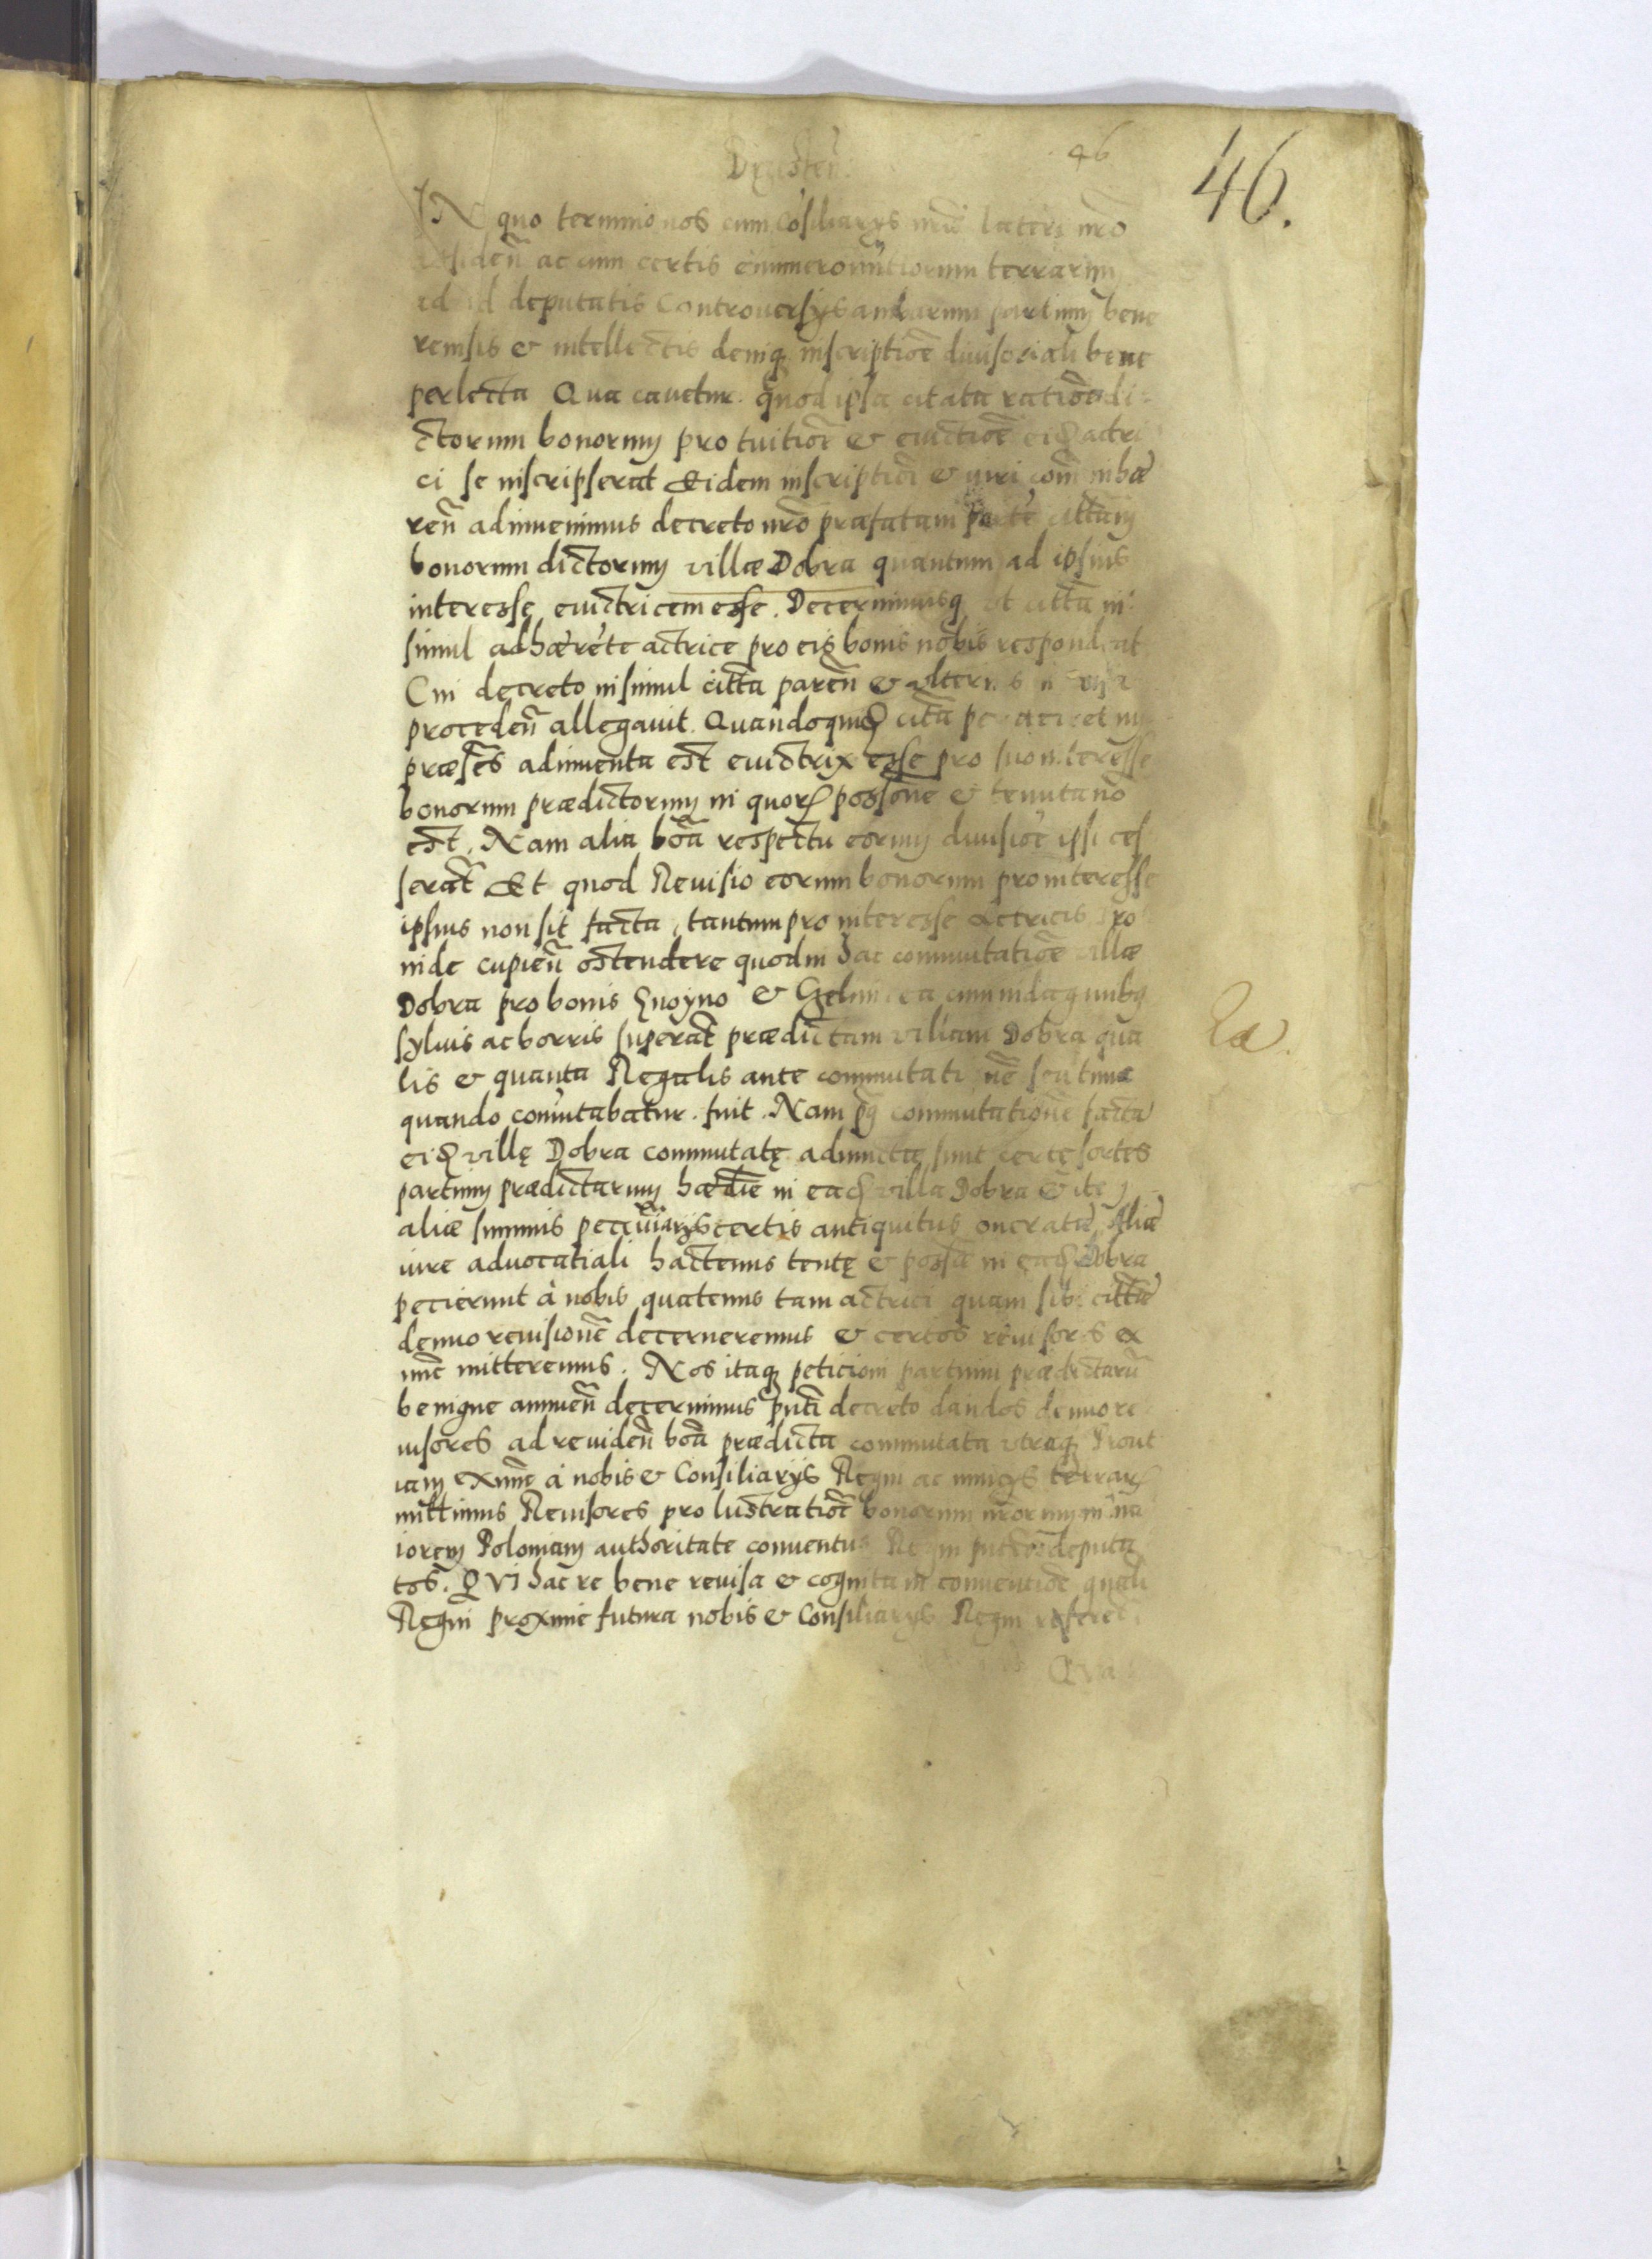 46
46.
IN quo termino nos cum Cōsiliarys nr̃is lateri nr̃o
ac cum certis è numero nūtiorum terrarum
ad id deputatis Controuersijs ambarum partium bene
reuisis & intellectis deniq; inscriptiōe diuisoriali bene
perlecta Qua cavetur quod ipsa citata ratiōe di
ctorum bonorum pro tuitiōe & euictiōe eid actri
ci se inscripserat Eidem inscriptiōi & iuri cōi inhæ
reñ adinuenimus decreto nr̃o præfatam citt̃am
bonorum dictorum villæ Dobra quantum ad ipsius
interesse euictricem esse. Decernimusq; vt citt̃a in
simul adhærēte actrice pro eis bonis nobis respondeat
Cui decreto insimul citt̃a pareñ & vlterius
procedeñ allegavit. Quandoquid cit̃a
præsēs adinuenta est euictrix esse pro suo interesse
bonorum prædictorum in quor possōne & tenuta nō
est. Nam alia bōa respectu eorum diuisiōe ipsi ces
serāt Et quod Reuisio eorum bonorum pro interesse
ipsius non sit facta, tantum pro interesse actricis Pro
inde cupieñ ostendere quod in hac commutatiōe villæ
Dobra pro bonis Gnoyno & cum indaginibq
syluis ac borris superāt prædictam villam Dobra qua
lis & quanta Regalis ante commutationē seu tunc
quando com̄utabatur fuit. Nam pq commutationē factā
eid villę Dobra commutatę adiunctæ sunt certę sortes
partium prædictarum hædiē in ead villa Dobra & item
aliæ summis pecuniarijs certis antiquitus oneratæ, Aliæ
iure aduocatiali hactenus tentę & possæ in ead Dobra
petierunt à nobis quatenus tam actrici quam sibi citt̃æ
denuo reuisionē decerneremus & certos reuisores ex
nūc mitteremus. Nos itaq; peticioni partium prædictarū
benigne annueñ decernimus pñti decreto dandos denuo re
uisores ad reuideñ bōa prædicta commutata vtraq; Prout
iam exnūc à nobis & Consiliarijs Regni ac nuncijs terrar
mittimus Reuisores pro lustratiōe bonorum nr̃orum in ma
iorem Poloniam authoritate conuentus Regni pñtis deputa
tos. QVI hac re bene reuisa & cognita in conuentiōe gnali
Regni proxime futura nobis & Consiliarijs Regni referēt
Qua